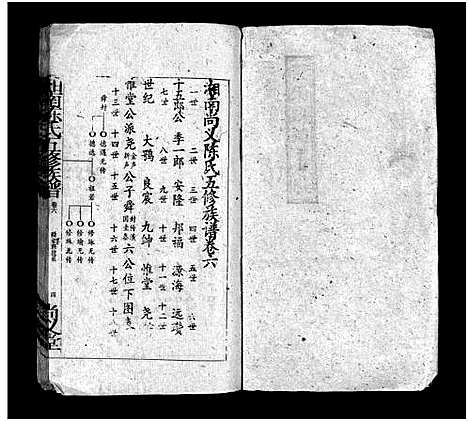 湘南尚义陈氏五修族谱卷六
一世 二世 三世 四世 五世 六世
十五郎公 季一郎 安隆 邦福 凉海 远琰
七世 八世 九世 十世 十一世 十二世
世纪 大鹗 良宸 九绅 惟堂 尧
惟堂公派尧 公子舜 六公位下图
十三世 十四世 十五世 十六世 十七世 十八世
舜封
德遇无传
德选
祖善
修咏无传
修瑜无传
修琳无传
湘南陈氏五修族谱
卷六
四
尚义堂